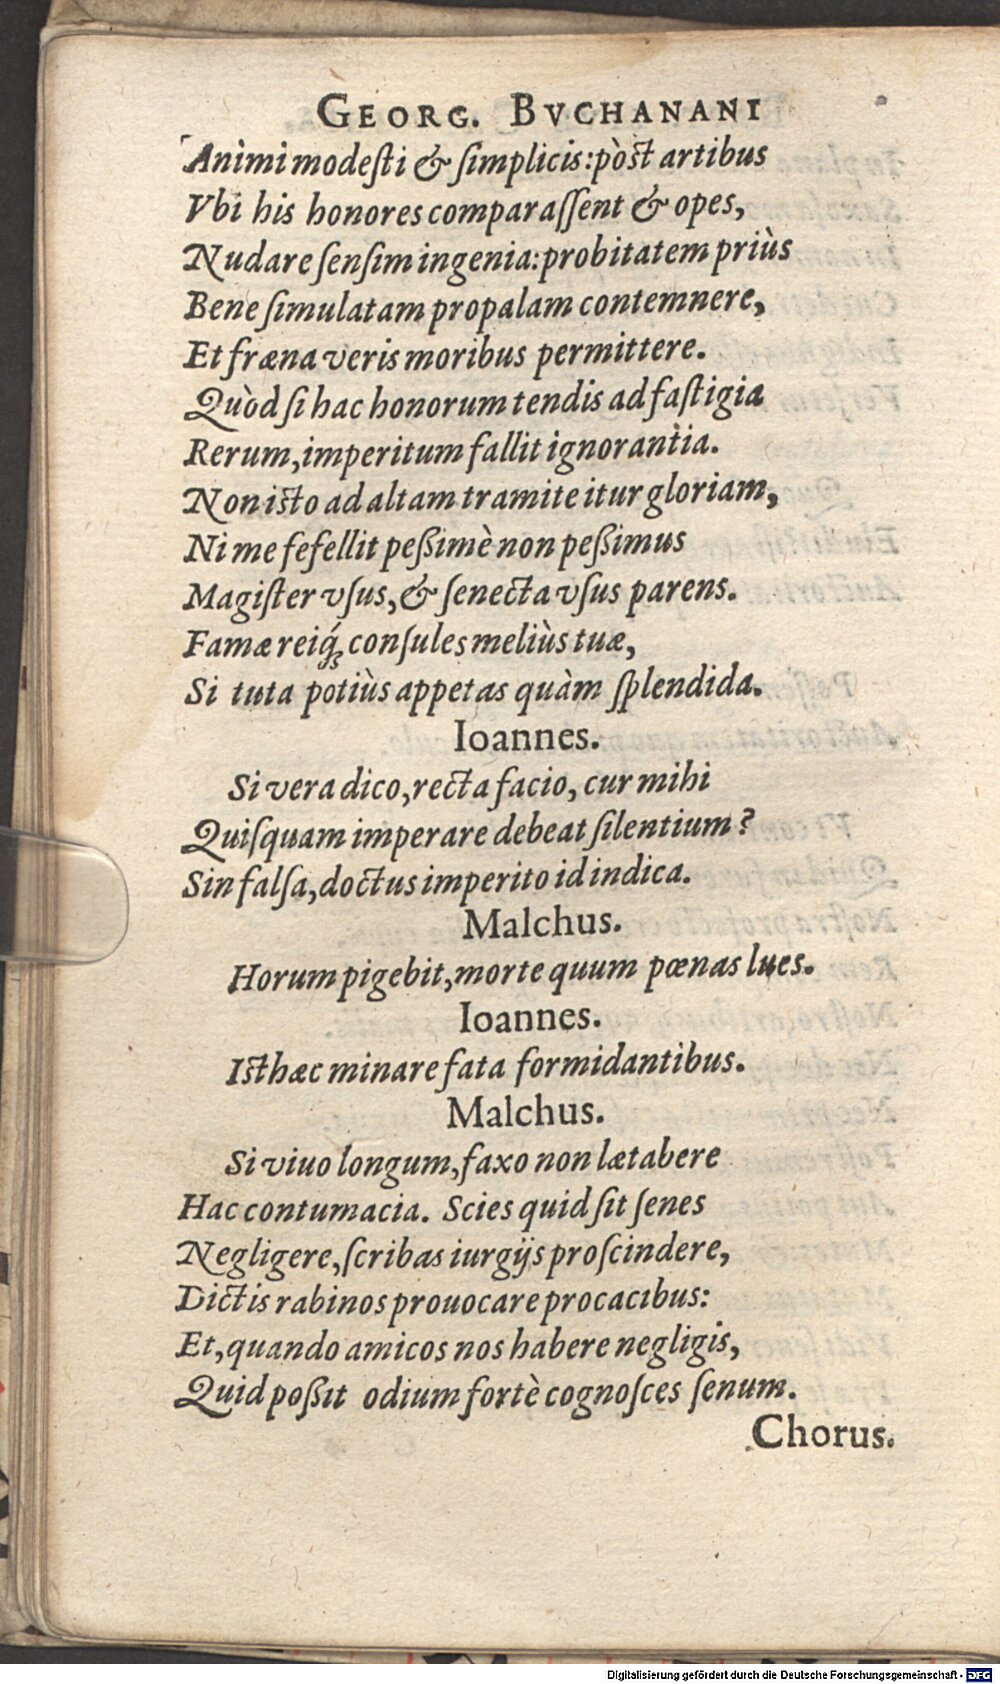 GEORG. BVCHANANI
Animi modeſti & ſimplicis: pòſt artibus
Vbi his honores comparaſſent & opes,
Nudare ſenſim ingenia: probitatem priùs
Bene ſimulatam propalam contemnere,
Et fræna veris moribus permittere.
Quòd ſi hac honorum tendis ad faſtigia
Rerum, imperitum fallit ignorantia.
Non iſto ad altam tramite itur gloriam,
Ni me fefellit peßimè non peßimus
Magiſter vſus, & ſenecta vſus parens.
Famæ reiq́; conſules meliùs tuæ,
Si tuta potiùs appetas quàm ſplendida.
Ioannes.
Si vera dico, recta facio, cur mihi
Quiſquam imperare debeat ſilentium?
Sin falſa, doctus imperito id indica.
Malchus.
Horum pigebit, morte quum pœnas lues.
Ioannes.
Iſthæc minare fata formidantibus.
Malchus.
Si viuo longum, faxo non lætabere
Hac contumacia. Scies quid ſit ſenes
Negligere, ſcribas iurgijs proſcindere,
Dictis rabinos prouocare procacibus:
Et, quando amicos nos habere negligis,
Quid poßit odium fortè cognoſces ſenum.
Chorus.
Digitalisierung gefördert durch die Deutsche Forschungsgemeinschaft - DFG